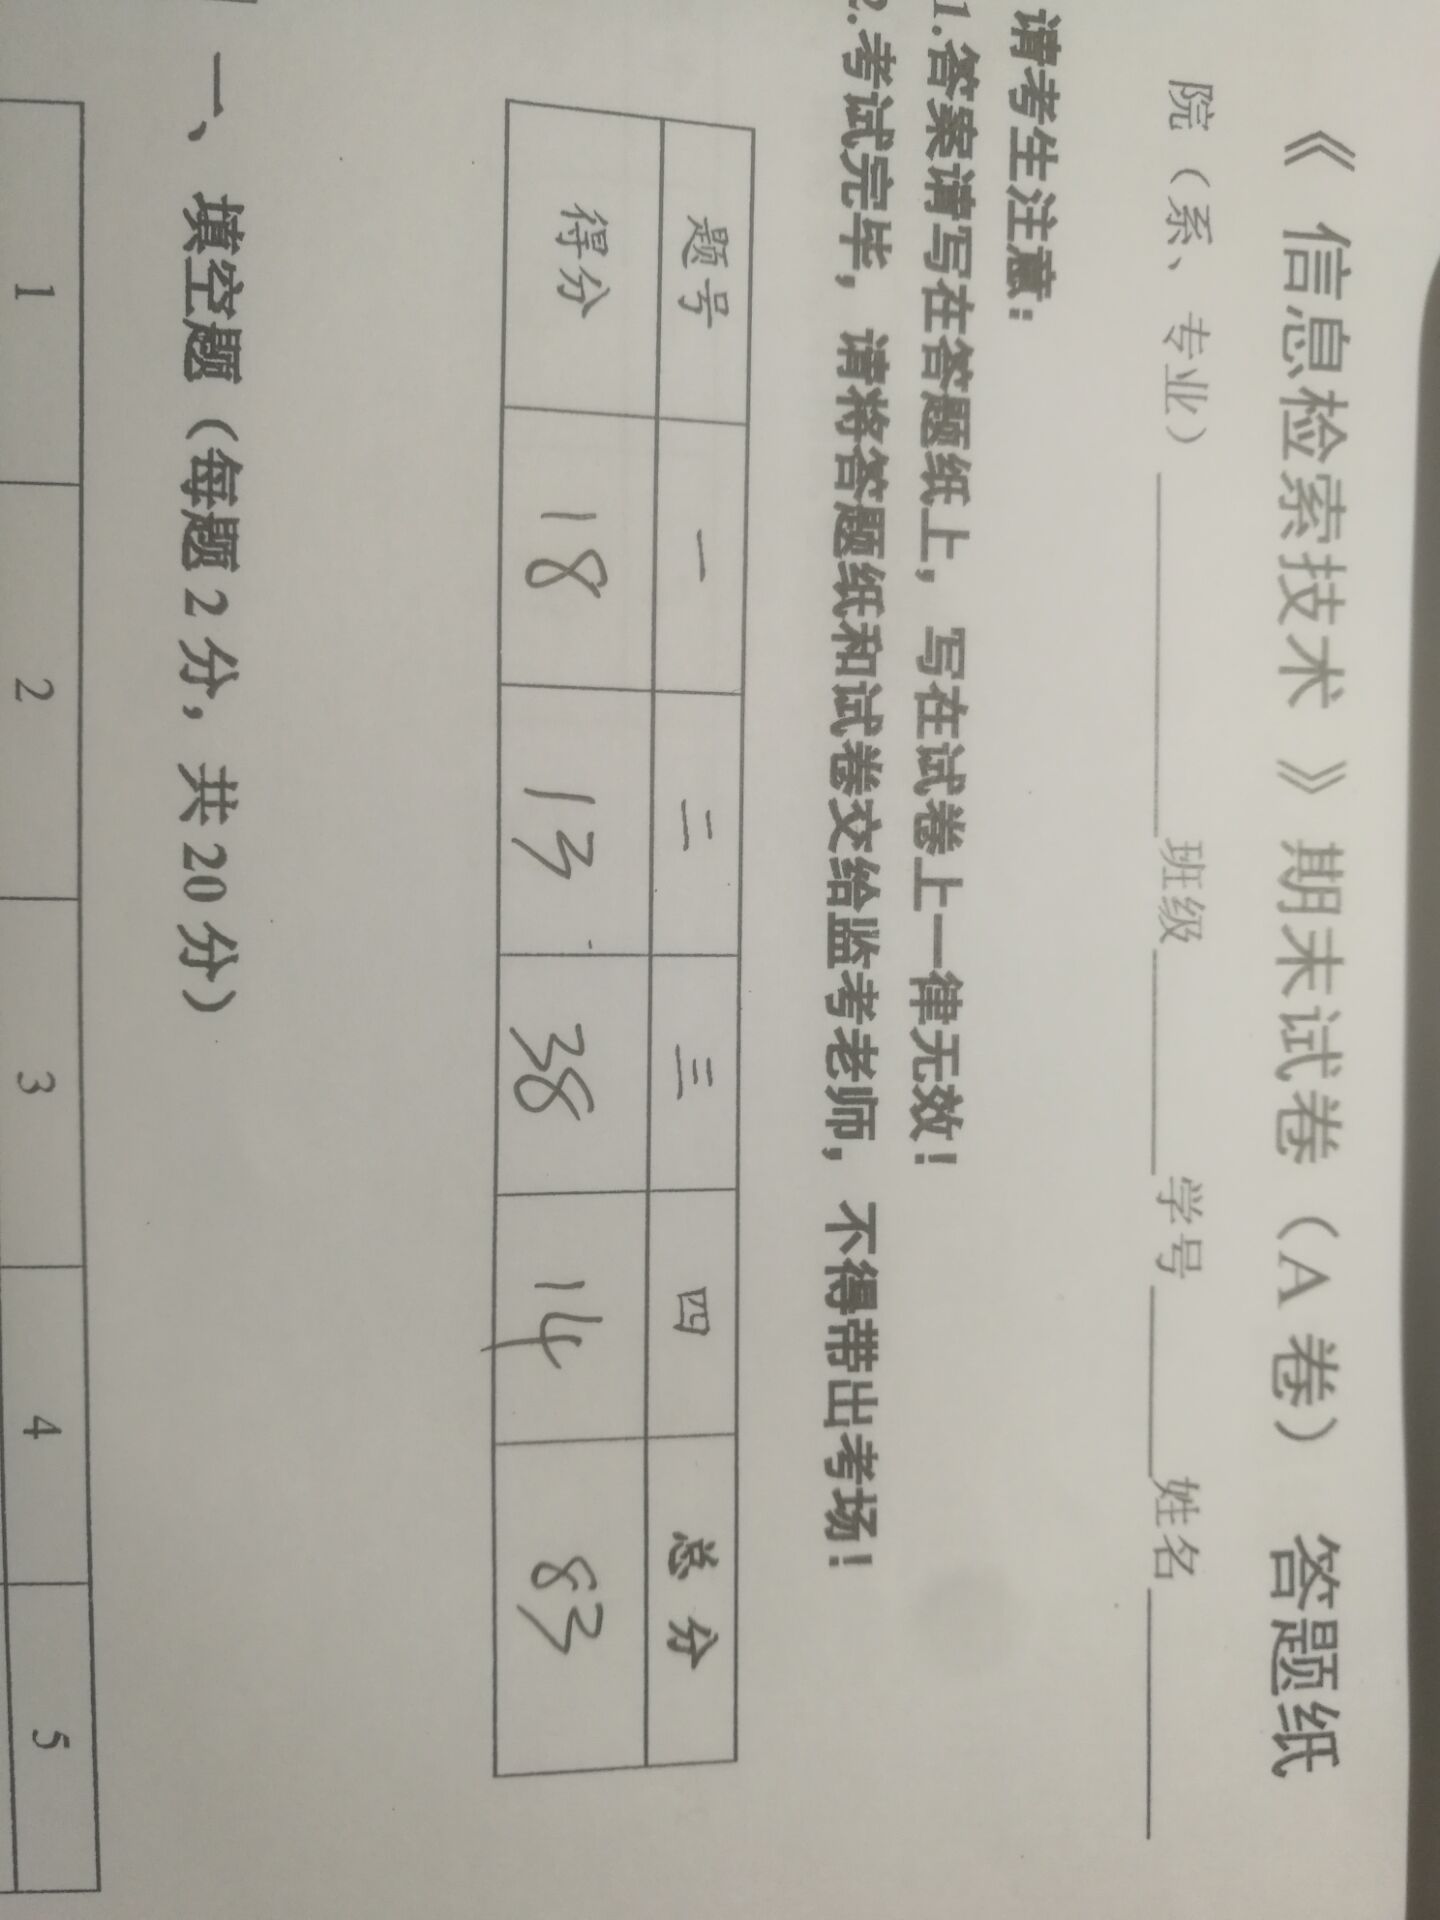 《 信息检索技术 》期末试卷（A 卷） 答题纸
院（系、专业）班级学号姓名
请考生注意：
1.答案请写在答题纸上，写在试卷上一律无效！
2.考试完毕，请将答题纸和试卷交给监考老师，不得带出考场！
题号 一 二 三 四 总 分
得分 18 13 38 14 83
一、 填空题（每题 2 分，共 20 分）
1 2 3 4 5